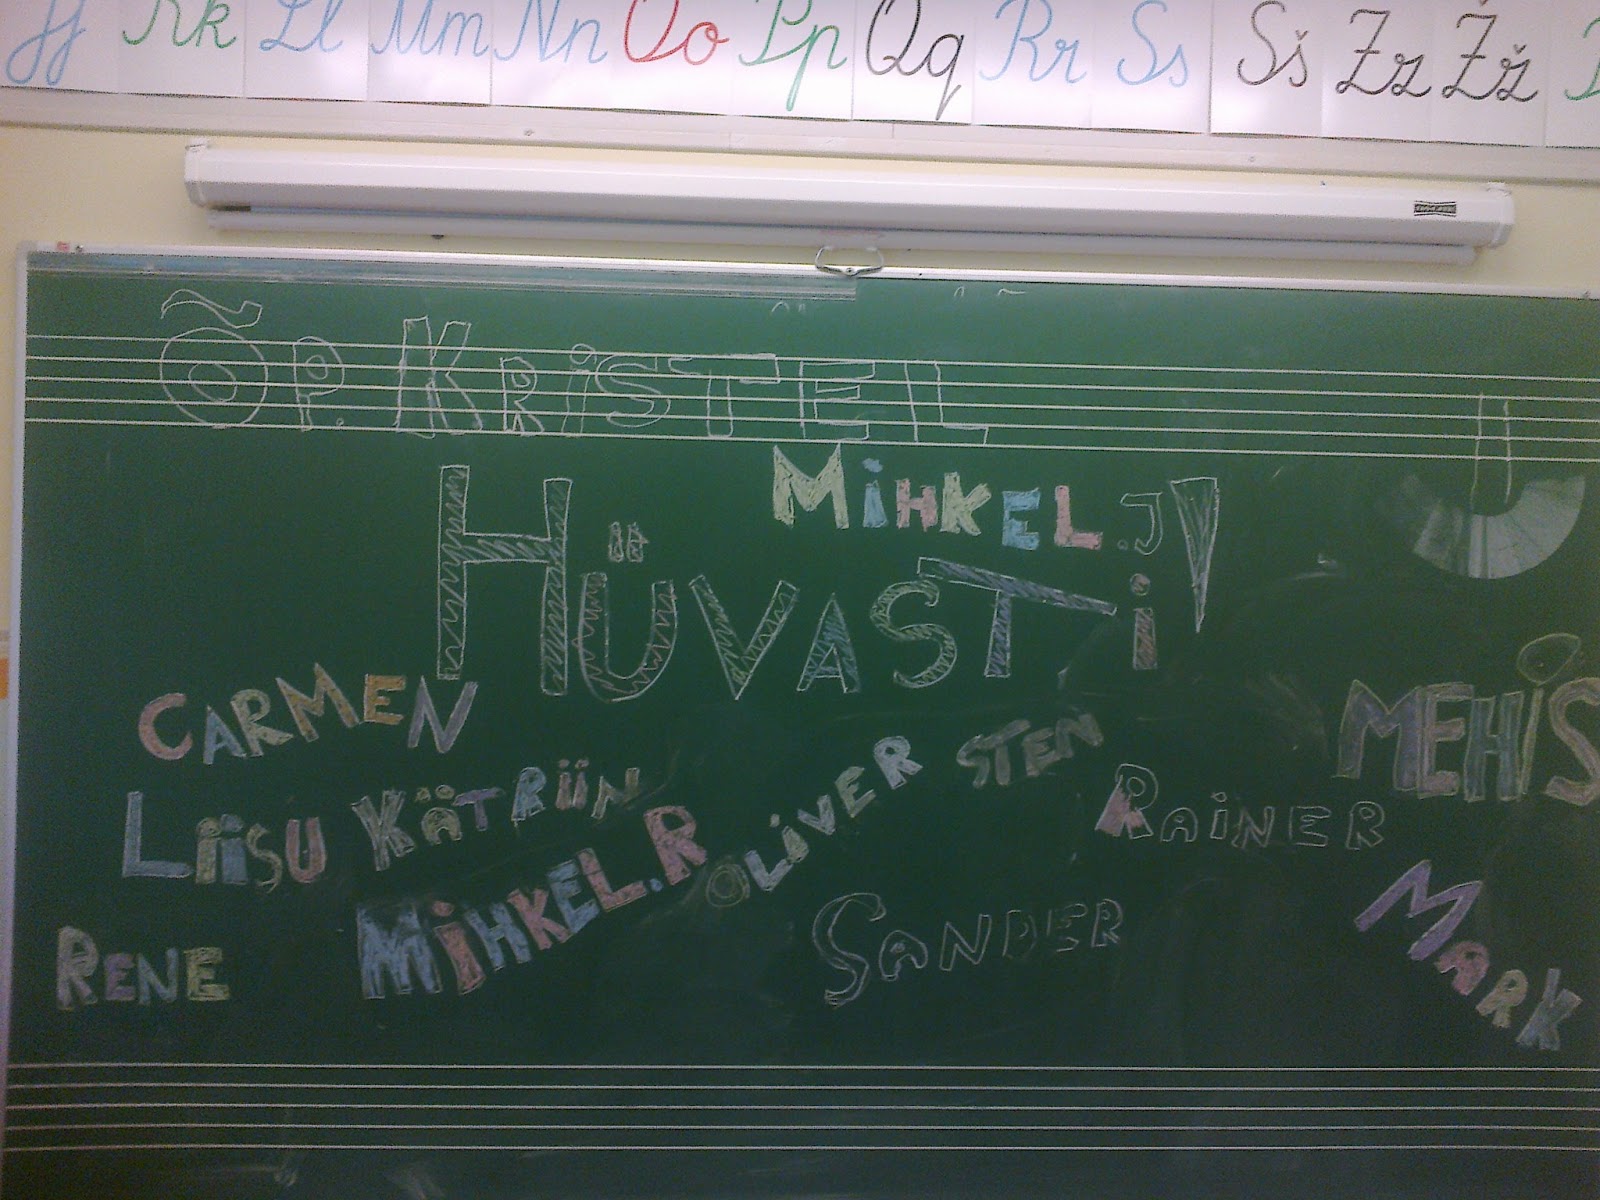 Jj Kk Ll Mm Nn Oo Pp Qq Rr Ss Šš Zz Žž
ÕP. KRiSTEL
MiHKEL.J
HÜVASTi!
CARMEN
STEN
MEHIS
LiiSU KÄTRiiN
OLiVER
RAiNER
MiHKEL.R
MARK
RENE
SANDER